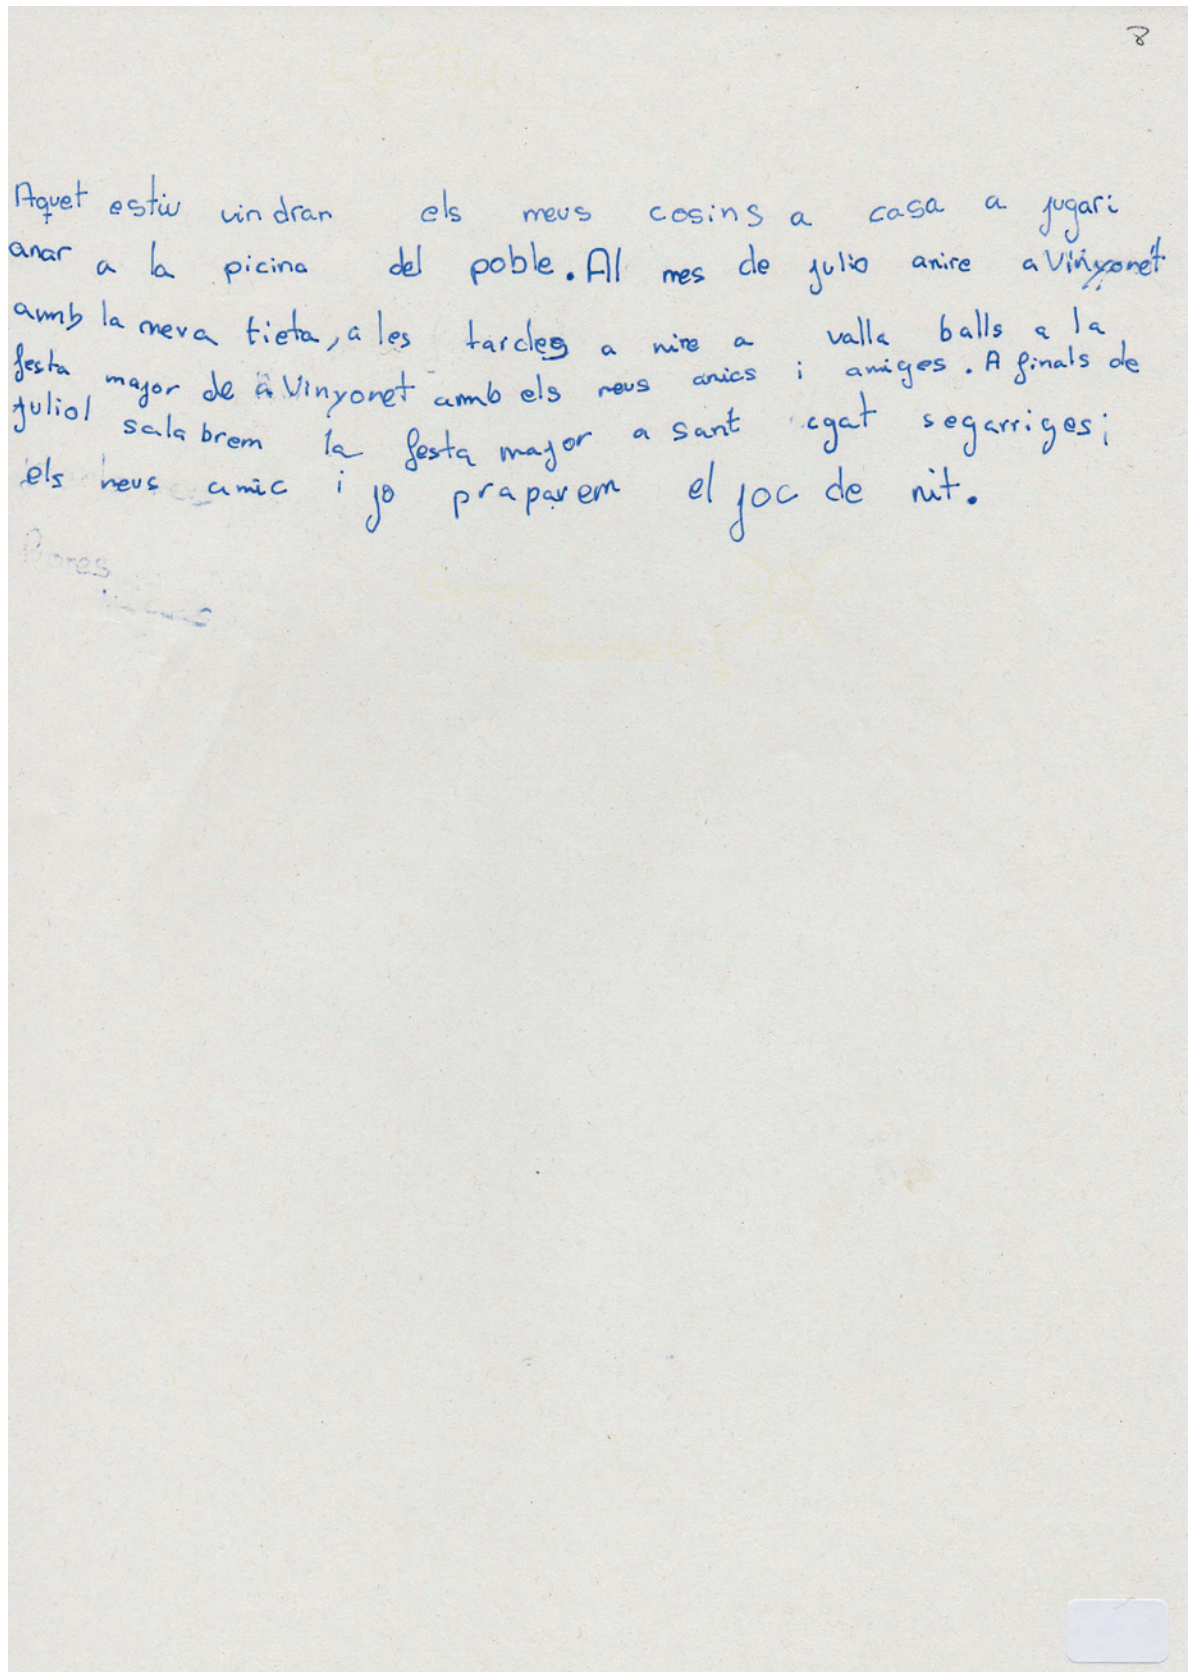 8
L'ESTIU
Aquet estiu vin dran els meus cosins a casa a jugar i
anar a la picina del poble. Al mes de julio anire a Vinyonet
amb la meva tieta, a les tardes a nire a valla balls a la
festa major de a Vinyonet amb els meus amics i amiges. A finals de
juliol sala brem la festa major a sant agat segarriges i
els meus amic i jo praparem el joc de nit.
Bones
Bones
vacances!